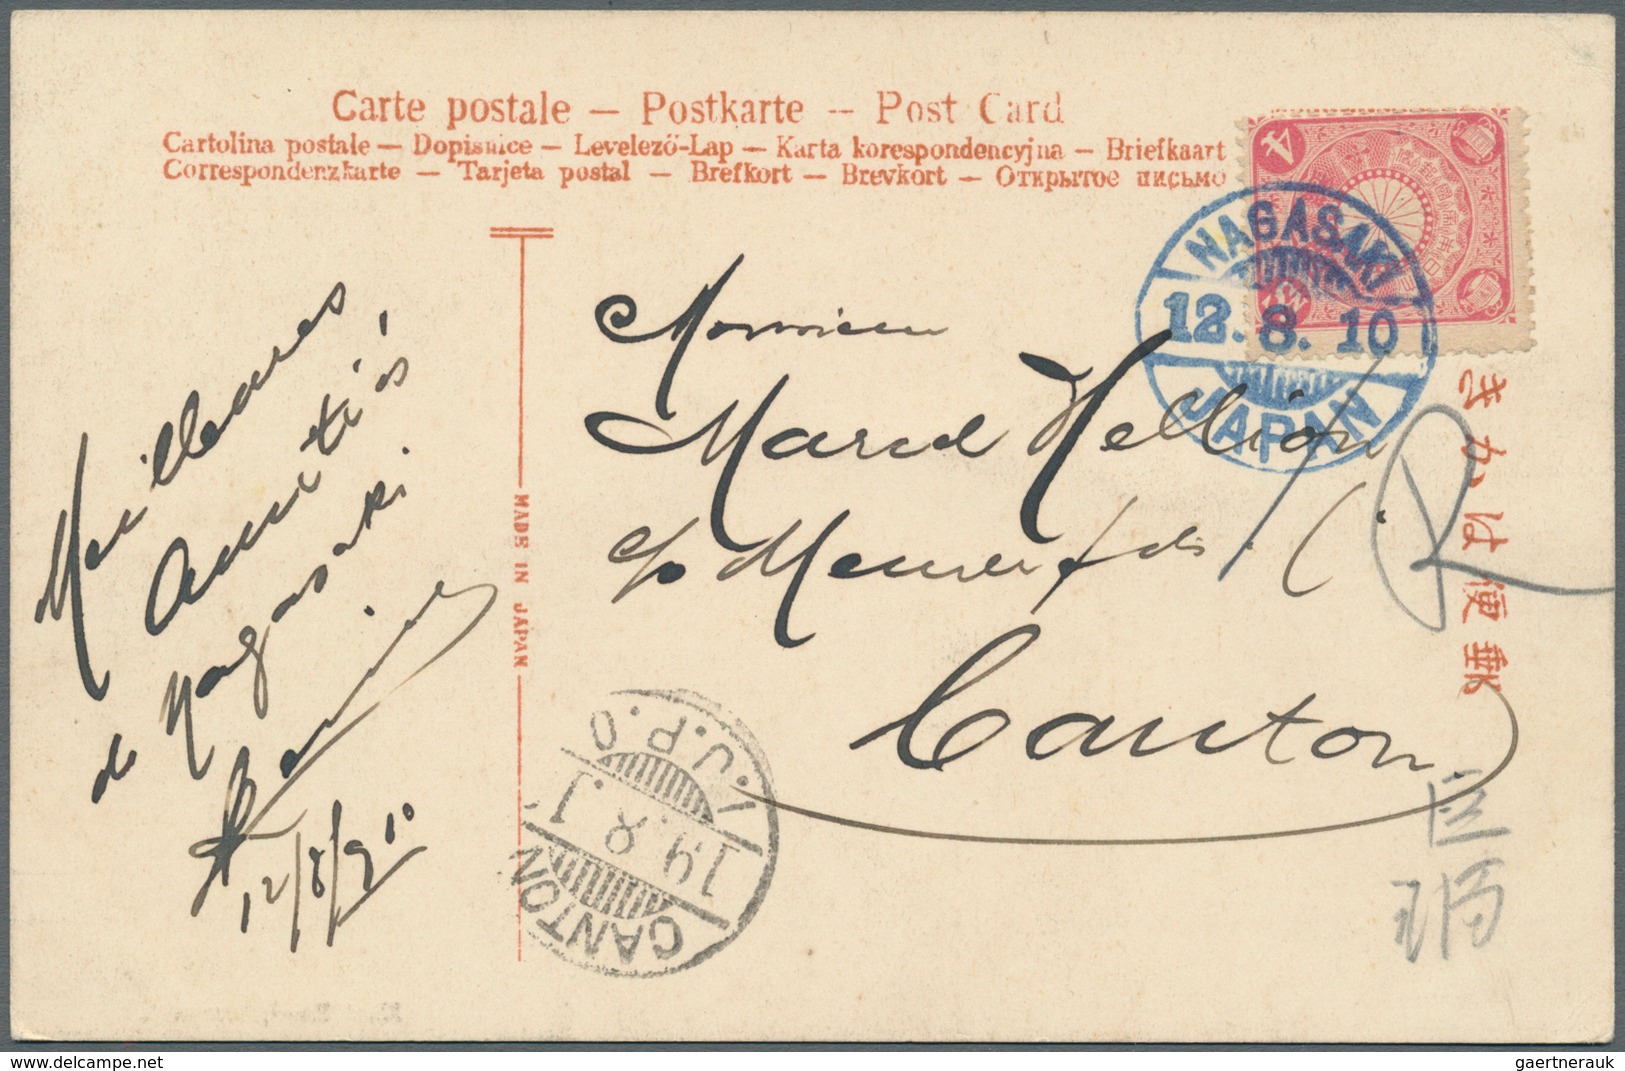 Carte postale — Postkarte — Post Card
Cartolina postale — Dopisnice — Levelező-Lap — Karta korespondencyjna — Briefkaart
Correspondenzkarte — Tarjeta postal — Brefkort — Brevkort — Открытое письмо
4
NAGASAKI
12.8.10
JAPAN
きかは便郵
MADE IN JAPAN
Meilleures
amitiés
de Nagasaki
12/8/910
Monsieur
Marcel Hellion
c/o
Canton
R
I.J.P.O.
19.8.1
CANTON
gaertnerauk @ delcampe.net